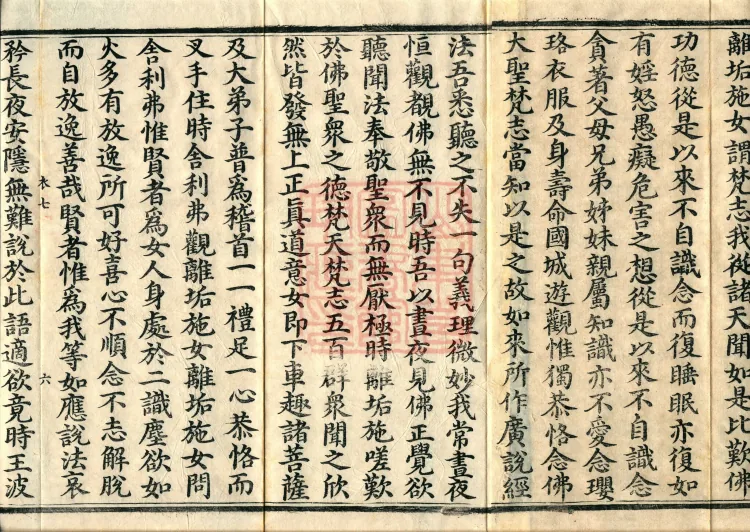 離垢施女謂梵志我從諸天聞如是比歎佛
功德從是以來不自識念而復睡眠亦復如
有婬怒愚癡危害之想從是以來不自識念
貪著父母兄弟姊妹親屬知識亦不愛念瓔
珞衣服及身壽命國城遊觀惟獨恭恪念佛
大聖梵志當知以是之故如來所作廣說經
法吾悉聽之不失一句義理微妙我常晝夜
恒觀覩佛無不見時吾以晝夜見佛正覺欲
聽聞法奉敬聖衆而無厭極時離垢施嗟歎
於佛聖衆之德梵天梵志五百群衆聞之欣
然皆發無上正眞道意女即下車趣諸菩薩
及大弟子普爲稽首一一禮足一心恭恪而
叉手住時舍利弗觀離垢施女離垢施女問
舍利弗惟賢者爲女人身處於二識塵欲如
火多有放逸所可好喜心不順念不志解脫
而自放逸善哉賢者惟爲我等如應說法哀
衣七
六
矜長夜安隱無難說於此語適欲竟時王波